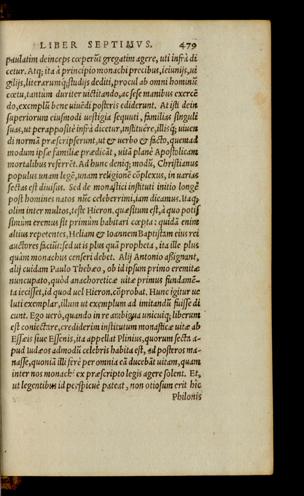 LIBER SEPTIMVS. 479
paulatim deinceps cœperūt gregatim agere, uti infrà di
cetur. Atq; ita à principio monachi precibus, ieiunijs, ui
gilijs, literarumq́; studijs dediti, procul ab omni hominū
cœtu, tantum duriter uictitando, ac sese manibus exercē
do, exemplū bene uiuēdi posteris ediderunt. At isti dein
superiorum eiusmodi uestigia sequuti, familias singuli
suas, ut perapposite infrà dicetur, instituêre, illisq́; uiuen
di normā præscripserunt, ut & uerbo & facto, quemad
modum ipsæ familiæ prædicāt, uitā planè Apostolicam
mortalibus referrēt. Ad hunc deniq; modū, Christianus
populus unam legē, unam religionē cōplexus, in uarias
sectas est diuisus. Sed de monastici instituti initio longè
post homines natos nūc celeberrimi, iam dicamus. Itaq;
olim inter multos, teste Hieron. quæsitum est, à quo potis
simùm eremus sit primùm habitari cœpta: quidā enim
altius repetentes, Heliam & Ioannem Baptistam eius rei
auctores faciūt: sed ut is plus quā propheta, ita ille plus
quàm monachus censeri debet. Alij Antonio assignant,
alij cuidam Paulo Thebæo, ob id ipsum primo eremitæ
nuncupato, quòd anachoreticæ uitæ primus fundamē-
ta iecisset, id quod uel Hieron. cōprobat. Hunc igitur ue
luti exemplar, illum ut exemplum ad imitandū fuisse di
cunt. Ego uerò, quando in re ambigua unicuiq; liberum
est coniectare, crediderim institutum monasticæ uitæ ab
Essæis siue Essenis, ita appellat Plinius, quorum secta a-
pud Iudæos admodū celebris habita est, ad posteros ma-
nasse, quoniā illi ferè per omnia eā ducebāt uitam, quam
inter nos monachi ex præscripto legis agere solent. Et,
ut legentibus id perspicuè pateat, non otiosum erit hic
Philonis